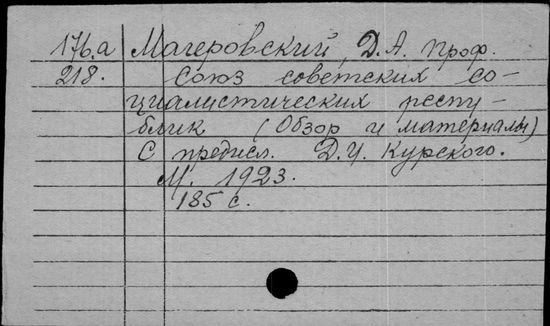 176.а Магеровский, Д.А. проф.
218. Союз советских со-
циалистических респу-
блик (Обзор и материалы)
С предисл. Д.И. Курского.
М. 1923.
185 с.